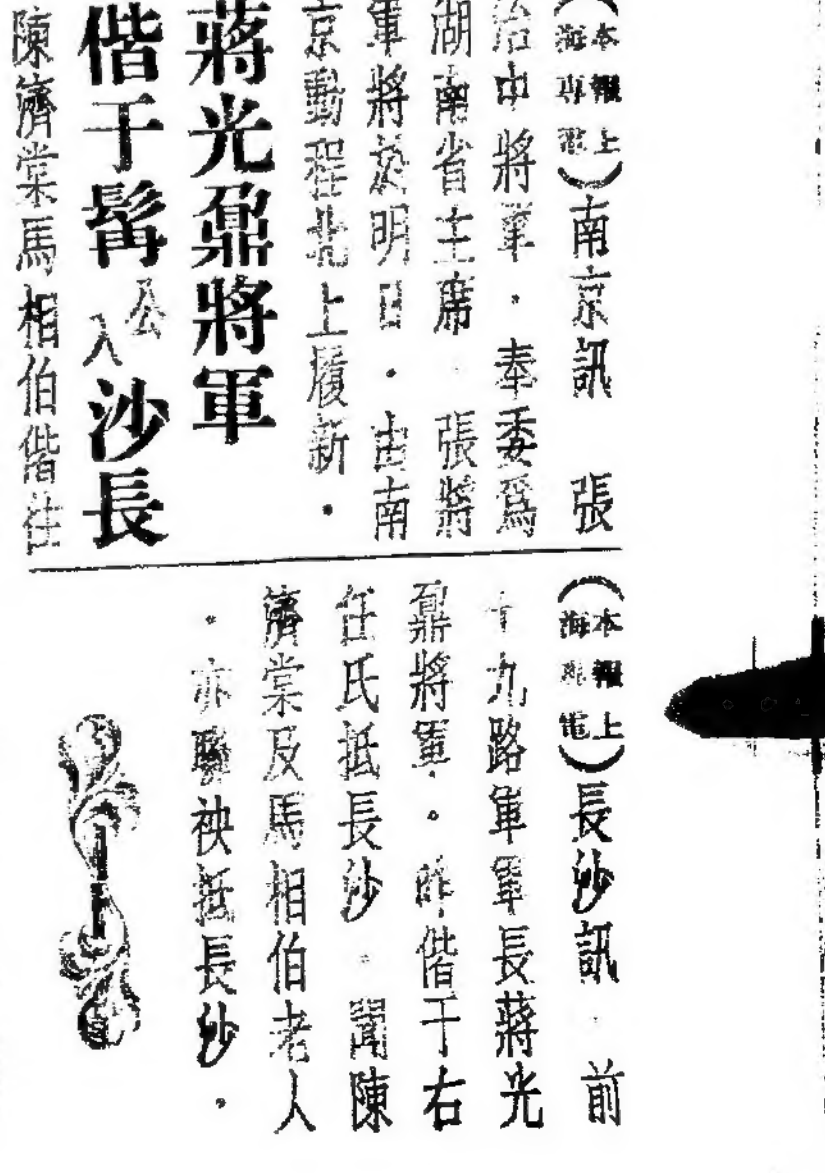 (本報上海專電)南京訊 張
治中將軍・奉委爲
湖南省主席 張將
軍將於明日・由南
京動程北上履新・
蔣光鼐將軍
偕于髯公入沙長
陳濟棠馬相伯偕往
(本報上海專電)長沙訊 前
十九路軍軍長蔣光
鼐將軍。昨偕于右
任氏抵長沙。聞陳
濟棠及馬相伯老人
。亦聯袂抵長沙。